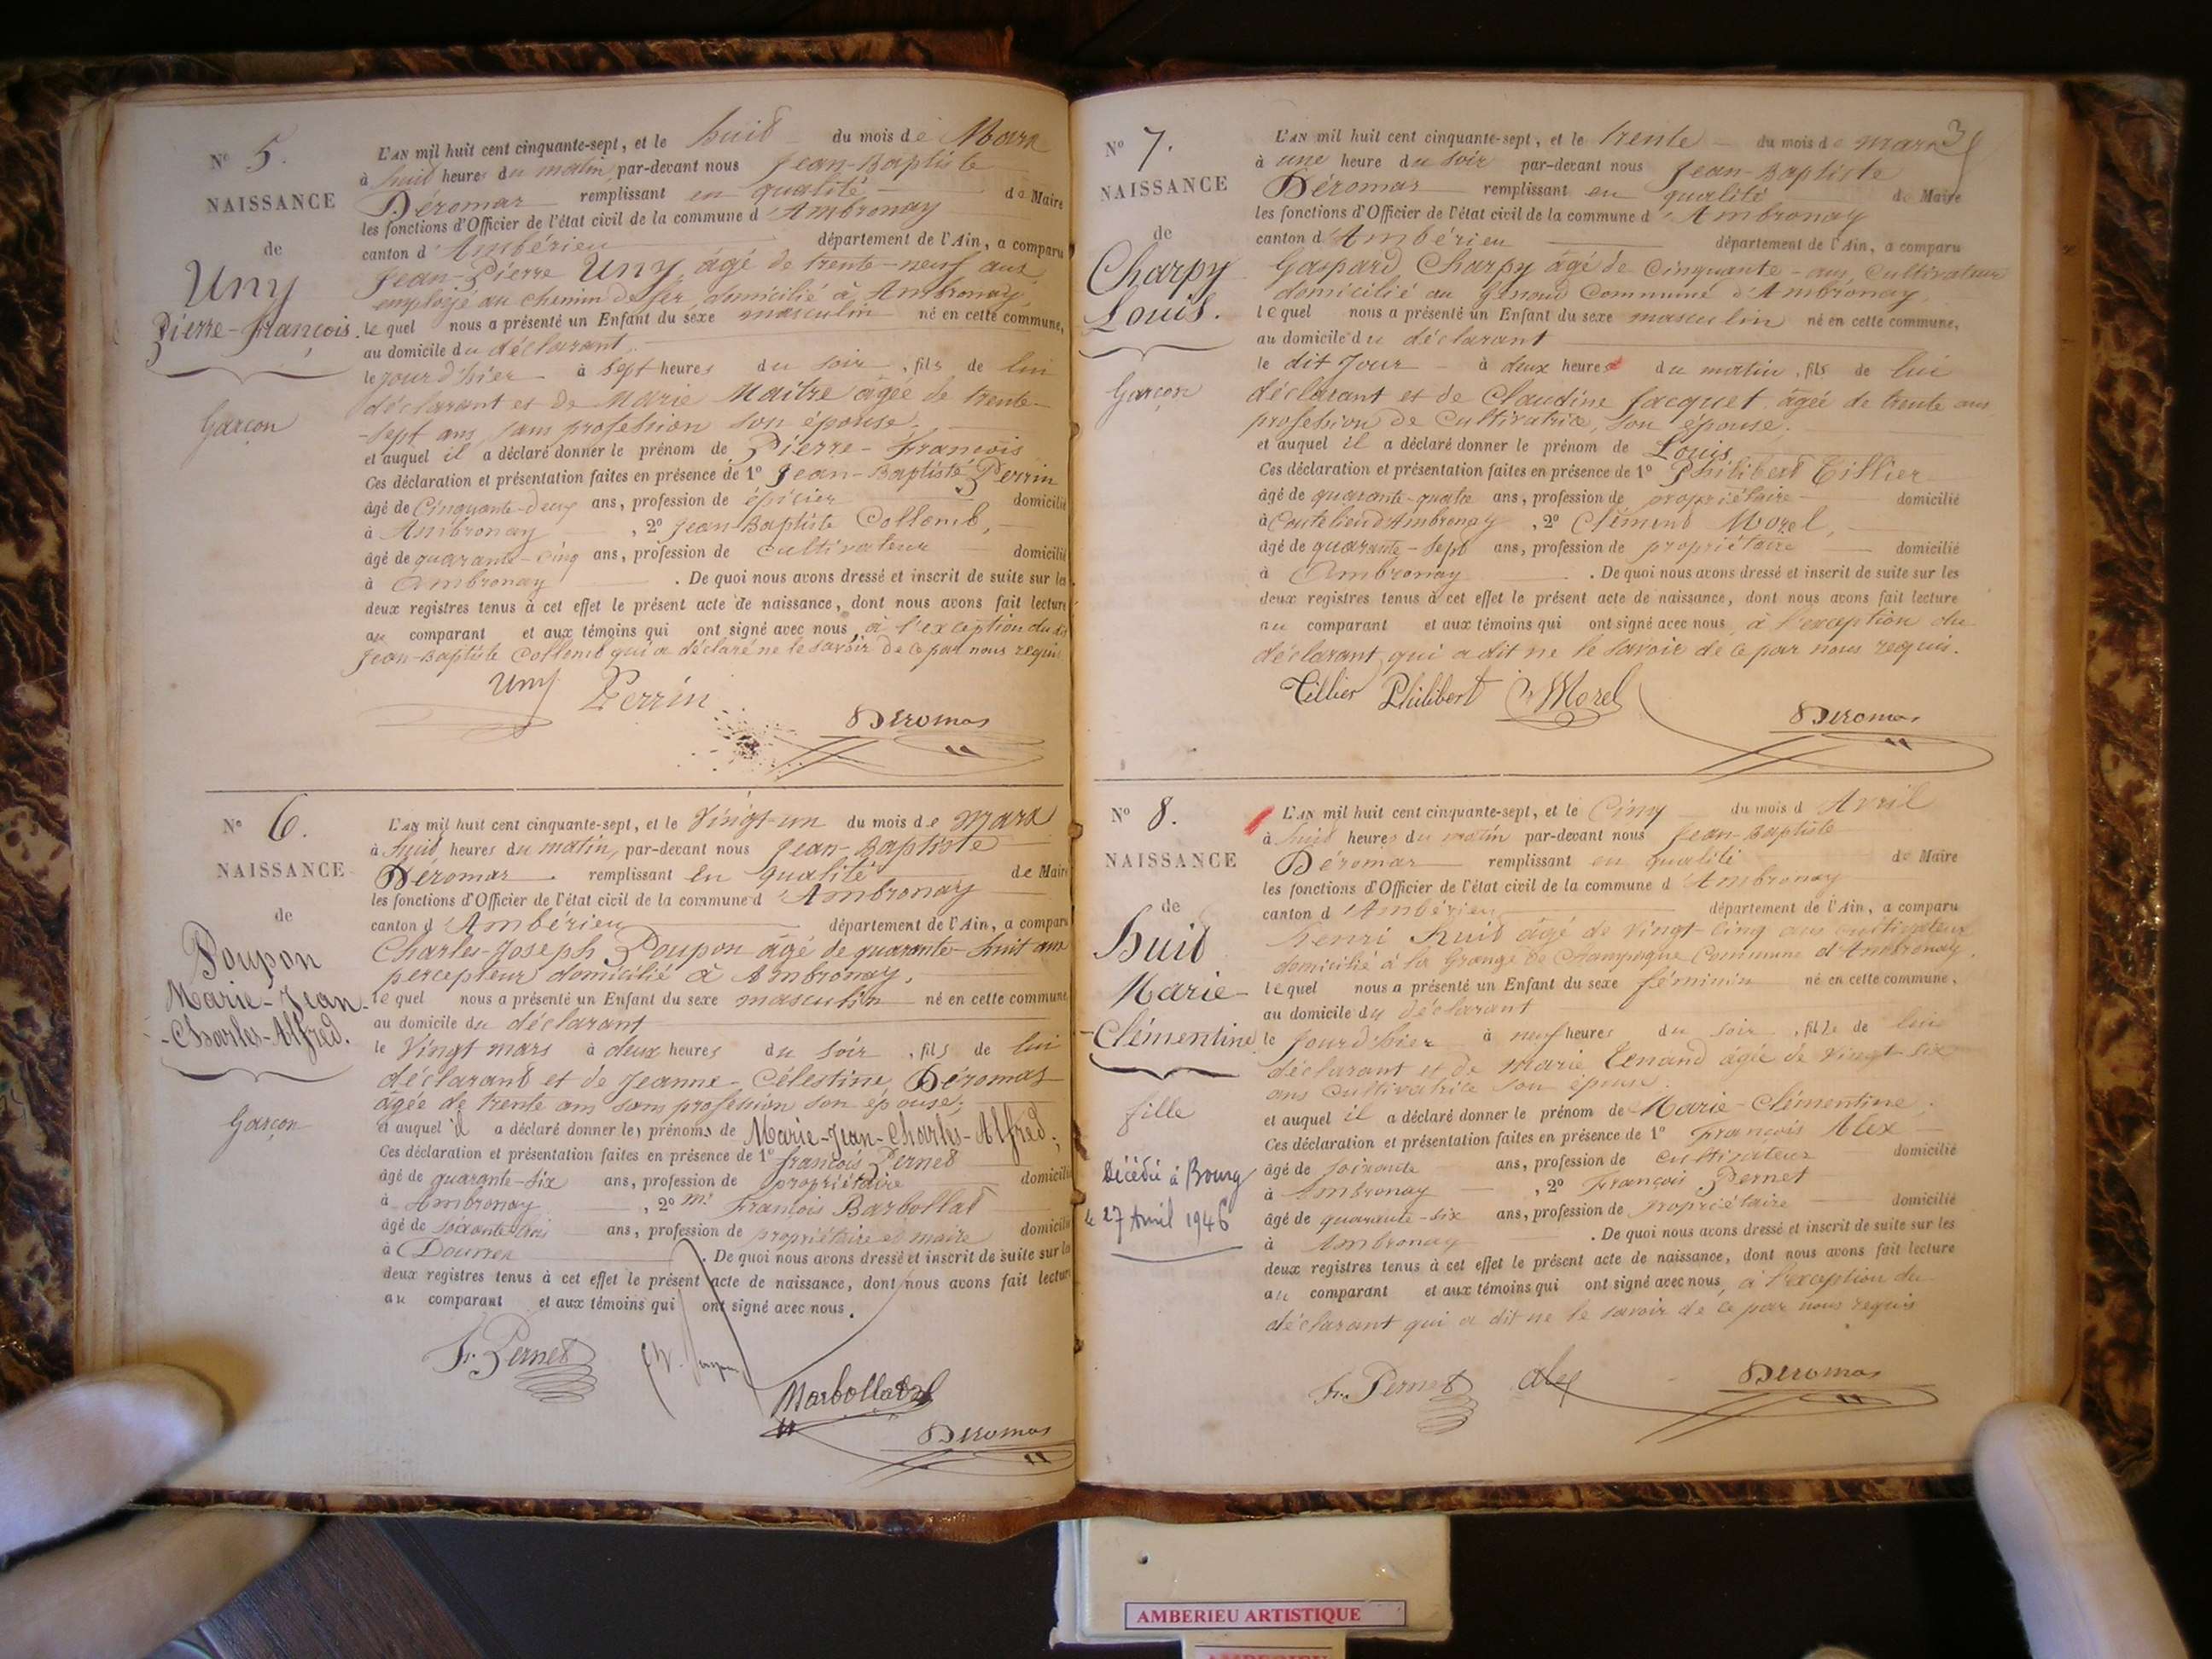 N° 5.
NAISSANCE
de
Uny
Pierre-François.
Garçon
L'AN mil huit cent cinquante-sept, et le huit du mois de Mars
à huit heures du matin, par-devant nous Jean-Baptiste
Déromas remplissant en qualité de Maire
les fonctions d'Officier de l'état civil de la commune d'Ambronay
canton d'Ambérieu département de l'Ain, a comparu
Jean-Pierre Uny, âgé de trente-neuf ans,
employé au chemin de fer, domicilié à Ambronay,
lequel nous a présenté un Enfant du sexe masculin né en cette commune,
au domicile du déclarant
le jour d'hier à sept heures du soir, fils de lui
déclarant et de Marie Maitre âgée de trente-
-sept ans, sans profession son épouse,
et auquel il a déclaré donner le prénom de Pierre-François
Ces déclaration et présentation faites en présence de 1° Jean-Baptiste Perrin
âgé de Cinquante-deux ans, profession de épicier domicilié
à Ambronay, 2° Jean-Baptiste Collomb,
âgé de quarante-cinq ans, profession de cultivateur domicilié
à Ambronay. De quoi nous avons dressé et inscrit de suite sur les
deux registres tenus à cet effet le présent acte de naissance, dont nous avons fait lecture
au comparant et aux témoins qui ont signé avec nous, à l'exception du dit
Jean-Baptiste Collomb qui a déclaré ne le savoir de ce par nous requis
Uny Perrin
Deromas
N° 6.
NAISSANCE
de
Poupon
Marie-Jean-
-Charles-Alfred.
Garçon
L'AN mil huit cent cinquante-sept, et le Vingt-un du mois de Mars
à huit heures du matin, par-devant nous Jean-Baptiste
Déromas remplissant en qualité de Maire
les fonctions d'Officier de l'état civil de la commune d'Ambronay
canton d'Ambérieu département de l'Ain, a comparu
Charles-Joseph Poupon âgé de quarante-huit ans
percepteur domicilié à Ambronay,
lequel nous a présenté un Enfant du sexe masculin né en cette commune
au domicile du déclarant
le Vingt mars à deux heures du soir, fils de lui
déclarant et de Jeanne-Célestine Déromas
âgée de trente ans sans profession son épouse;
et auquel il a déclaré donner les prénoms de Marie-Jean-Charles-Alfred;
Ces déclaration et présentation faites en présence de 1° François Pernet
âgé de quarante-six ans, profession de propriétaire domicilié
à Ambronay, 2° Mr François Barbollat
âgé de ans, profession de propriétaire et maire domicilié
à Douvres. De quoi nous avons dressé et inscrit de suite sur les
deux registres tenus à cet effet le présent acte de naissance, dont nous avons fait lecture
au comparant et aux témoins qui ont signé avec nous.
Fr. Pernet
Barbollat
Deromas
3
N° 7.
NAISSANCE
de
Charpy
Louis.
Garçon
L'AN mil huit cent cinquante-sept, et le trente du mois de mars
à une heure du soir par-devant nous Jean-Baptiste
Déromas remplissant en qualité de Maire
les fonctions d'Officier de l'état civil de la commune d'Ambronay
canton d'Ambérieu département de l'Ain, a comparu
Gaspard Charpy âgé de Cinquante-ans, Cultivateur
domicilié au Genoud Commune d'Ambronay
lequel nous a présenté un Enfant du sexe masculin né en cette commune,
au domicile du déclarant
le dit Jour à deux heures du matin, fils de lui
déclarant et de Claudine Jacquet âgée de trente ans
profession de Cultivatrice, son épouse;
et auquel il a déclaré donner le prénom de Louis
Ces déclaration et présentation faites en présence de 1° Philibert Tillier
âgé de quarante-quatre ans, profession de propriétaire domicilié
à d'Ambronay, 2° Clément Morel,
âgé de quarante-sept ans, profession de propriétaire domicilié
à Ambronay. De quoi nous avons dressé et inscrit de suite sur les
deux registres tenus à cet effet le présent acte de naissance, dont nous avons fait lecture
au comparant et aux témoins qui ont signé avec nous, à l'exception du
déclarant qui a dit ne le savoir de ce par nous requis.
Tillier Philibert C. Morel
Deromas
N° 8.
NAISSANCE
de
Huit
Marie-
-Clémentine
fille
Décédée à Bourg
le 27 Avril 1946
L'AN mil huit cent cinquante-sept, et le Cinq du mois d'Avril
à huit heures du matin par-devant nous Jean-Baptiste
Déromas remplissant en qualité de Maire
les fonctions d'Officier de l'état civil de la commune d'Ambronay
canton d'Ambérieu département de l'Ain, a comparu
Henri Huit âgé de vingt-cinq ans cultivateur
domicilié à la Grange de Champagne Commune d'Ambronay.
lequel nous a présenté un Enfant du sexe féminin né en cette commune,
au domicile du déclarant
le Jour d'hier à neuf heures du soir, fille de lui
déclarant et de Marie Tenand âgée de vingt-six
ans Cultivatrice son épouse
et auquel il a déclaré donner le prénom de Marie-Clémentine,
Ces déclaration et présentation faites en présence de 1° François Alex
âgé de soixante ans, profession de cultivateur domicilié
à Ambronay, 2° François Pernet
âgé de quarante-six ans, profession de propriétaire domicilié
à Ambronay. De quoi nous avons dressé et inscrit de suite sur les
deux registres tenus à cet effet le présent acte de naissance, dont nous avons fait lecture
au comparant et aux témoins qui ont signé avec nous, à l'exception du
déclarant qui a dit ne le savoir de ce par nous requis
Fr. Pernet Alex
Deromas
AMBERIEU ARTISTIQUE
AMBERIEU